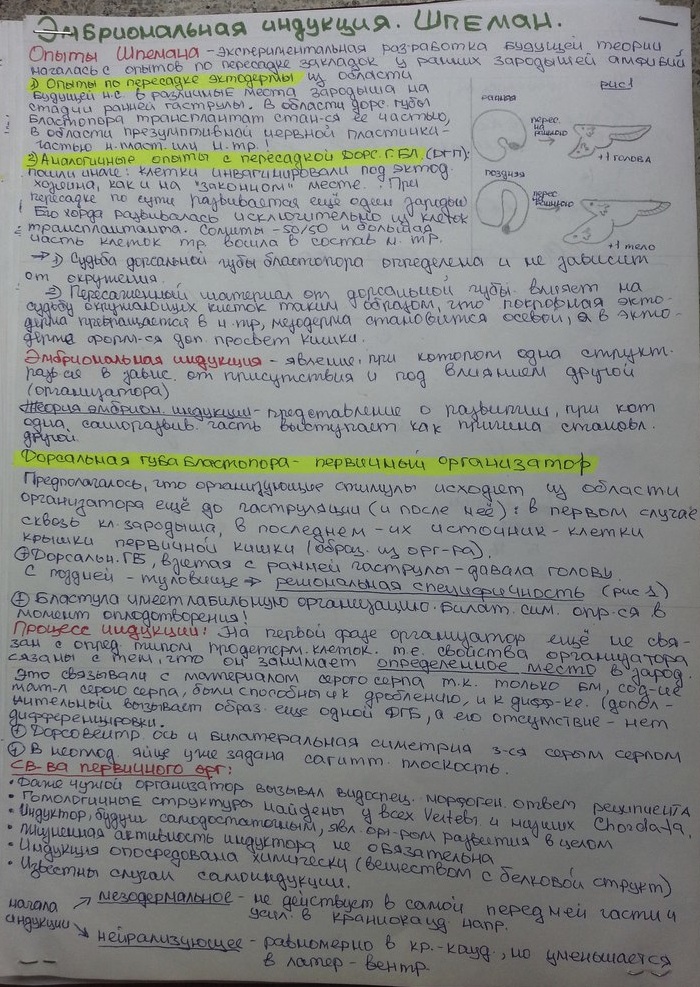 Эмбриональная индукция. Шпеман.
Опыты Шпемана - экспериментальная разработка будущей теории
началась с опытов по пересадке закладок у ранних зародышей амфибий
1) Опыты по пересадке эктодермы из области
будущей н.с. в различные места зародыша на
стадии ранней гаструлы. В области дорс. губы
бластопора трансплантат стан-ся её частью,
в области презумптивной нервной пластинки-
частью н.пласт. или н.тр.!
2) Аналогичные опыты с пересадкой дорс.г.бл. (ДГП):
пошли иначе: клетки инвагинировали под эктод.
хозяина, как и на "законном" месте. При
пересадке по сути развивается ещё один зародыш
Его хорда развивалась исключительно из клеток
трансплантата. Сомиты - 50/50 и большая
часть клеток тр. вошла в состав н. тр.
рис1
ранняя
перес.
на
раннюю
+1 голова
поздняя
перес.
+1 тело
→ 1) Судьба дорсальной губы бластопора определена и не зависит
от окружения.
2) Пересаженный материал от дорсальной губы влияет на
судьбу окружающих клеток таким образом, что покровная экто-
дерма превращается в н.тр, мезодерма становится осевой, а в энто-
дерме форм-ся доп. просвет кишки.
Эмбриональная индукция - явление, при котором одна структ.
разв-ся в завис. от присутствия и под влиянием другой
(организатора)
Теория эмбрион. индукции - представление о развитии, при кот
одна саморазвив. часть выступает как причина становл.
другой.
Дорсальная губа бластопора - первичный организатор
Предполагалось, что организующие стимулы исходят из области
организатора ещё до гаструляции (и после неё): в первом случае
сквозь кл. зародыша, в последнем - их источник - клетки
крышки первичной кишки (образ. из орг-ра).
+ Дорсальн. ГБ, взятая с ранней гаструлы - давала голову
с поздней - туловище → региональная специфичность (рис 1)
+ Бластула имеет лабильную организацию. Билат. сим. опр-ся в
момент оплодотворения!
Процесс индукции: На первой фазе организатор ещё не свя-
зан с опред. типом продетерм. клеток. т.е. свойства организатора
связаны с тем, что он занимает определенное место в зарод.
Это связывали с материалом серого серпа т.к. только БМ, сод-ие
мат-л серого серпа, были способны и к дроблению, и к дифф-ке. (допол-
нительный вызывает образ. еще одной ДГБ, а его отсутствие - нет
дифференцировки.
+ Дорсовентр. ось и билатеральная симетрия з-ся серым серпом
+ В неоплод. яйце уже задана сагитт. плоскость.
Св-ва первичного орг:
• Даже чужой организатор вызывал видоспец. морфоген. ответ реципиента
• Гомологичные структуры найдены у всех Vertebr. и низших Chordata.
• Индуктор, будучи самодостаточным, явл. орг-ром развития в целом
• Жизненная активность индуктора не обязательна
• Индукция опосредована химически (веществом с белковой структ)
• Известны случаи самоиндукции.
начала
индукции
→ мезодермальное - не действует в самой передней части и
усил. в краниокауд. напр.
→ нейрализующее - равномерно в кр.-кауд., но уменьшается
в латер - вентр.